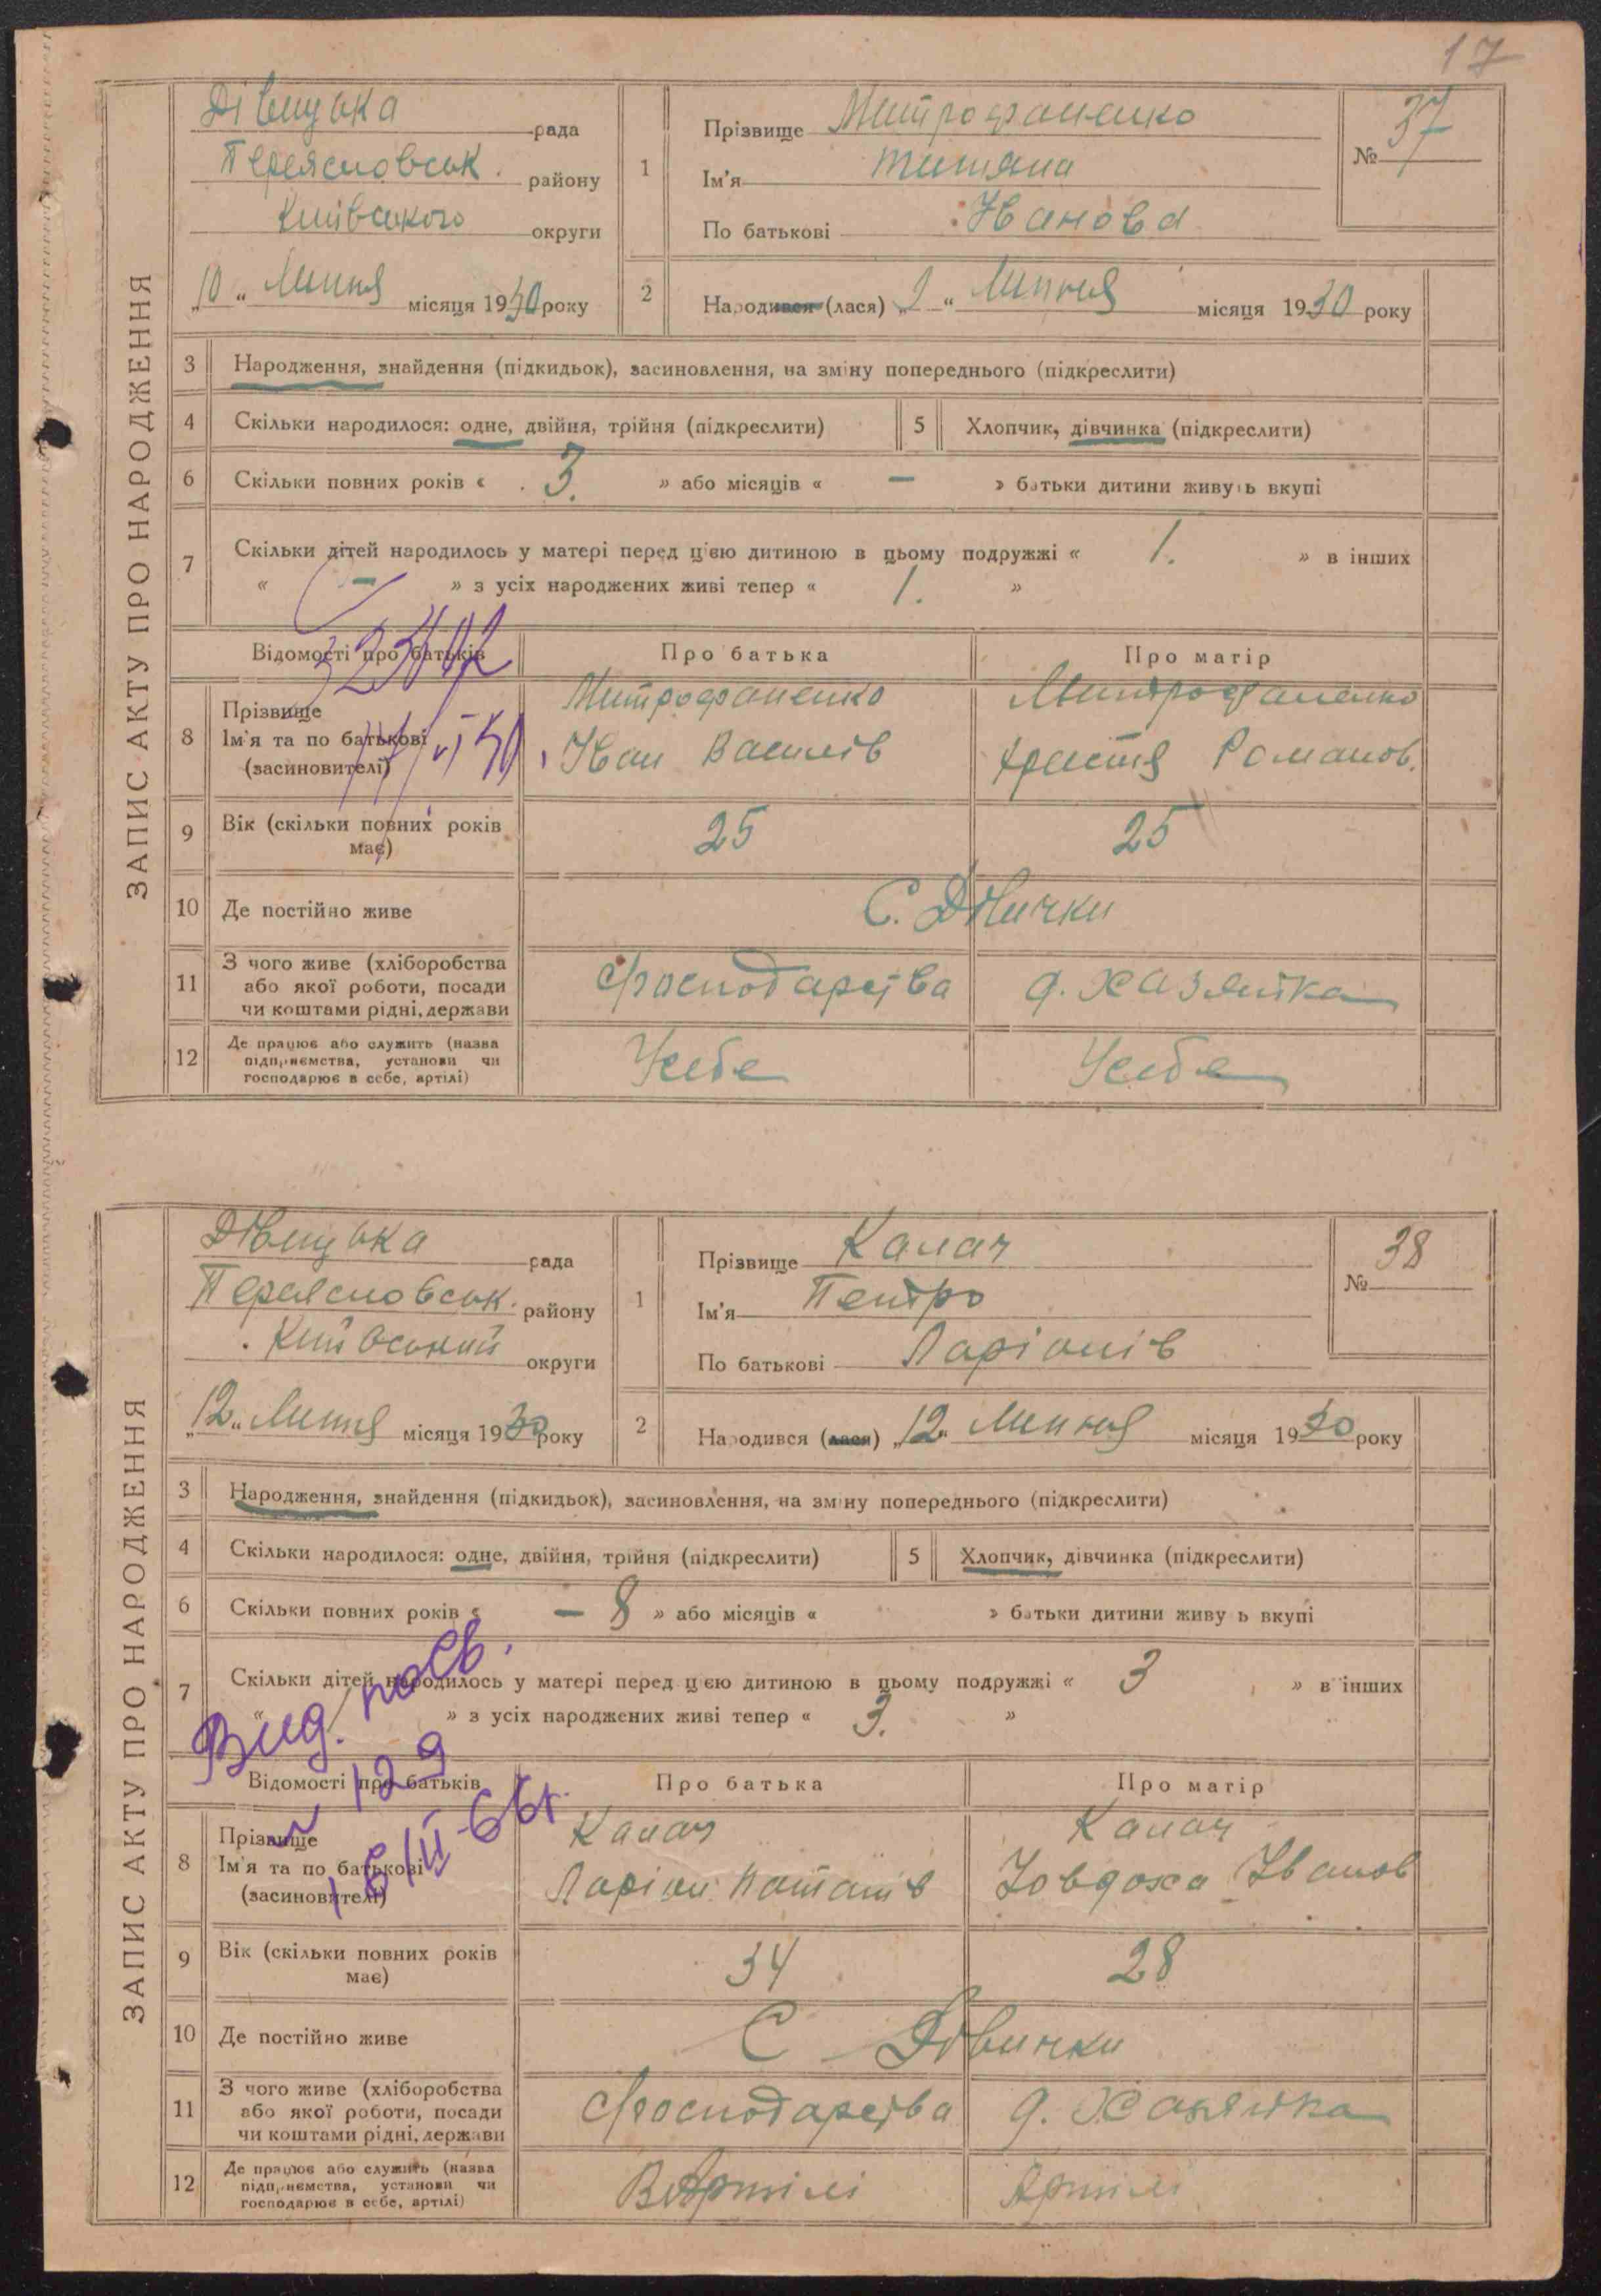 17
ЗАПИС АКТУ ПРО НАРОДЖЕННЯ
Дівицька рада
Переясловськ. району
Київського округи
„10“ Липня місяця 1930 року
1
Прізвище Митрофаненко
Ім'я Титяна
По батькові Іванова
№ 37
2
Народився (лася) „2“ Липня місяця 1930 року
3 Народження, знайдення (підкидьок), засиновлення, на зміну попереднього (підкреслити)
4 Скільки народилося: одне, двійня, трійня (підкреслити)
5 Хлопчик, дівчинка (підкреслити)
6 Скільки повних років « 3. » або місяців « — » батьки дитини живуть вкупі
7 Скільки дітей народилось у матері перед цією дитиною в цьому подружжі « 1. » в інших
« — » з усіх народжених живі тепер « 1. »
Відомості про батьків
Про батька
Про матір
8 Прізвище
Ім'я та по батькові
(засиновителі)
Митрофаненко
Іван Василів
Митрофаненко
Христя Романов.
9 Вік (скільки повних років
має)
25
25
10 Де постійно живе
С. Дівички
11 З чого живе (хліборобства
або якої роботи, посади
чи коштами рідні, держави
Господарства
д. Хазяйка
12 Де працює або служить (назва
підприємства, установи чи
господарює в себе, артілі)
Усебе
Усебе
ЗАПИС АКТУ ПРО НАРОДЖЕННЯ
Дівицька рада
Переясловськ. району
Київський округи
„12“ Липня місяця 1930 року
1
Прізвище Калач
Ім'я Петро
По батькові Ларіонів
№ 38
2
Народився (лася) „12“ Липня місяця 1930 року
3 Народження, знайдення (підкидьок), засиновлення, на зміну попереднього (підкреслити)
4 Скільки народилося: одне, двійня, трійня (підкреслити)
5 Хлопчик, дівчинка (підкреслити)
6 Скільки повних років « — 8 » або місяців « » батьки дитини живуть вкупі
7 Скільки дітей народилось у матері перед цією дитиною в цьому подружжі « 3 » в інших
« » з усіх народжених живі тепер « 3. »
Вид. посв.
№ 129
16/II-66г.
Відомості про батьків
Про батька
Про матір
8 Прізвище
Ім'я та по батькові
(засиновителі)
Калач
Ларіон
Калач
Їовдоха Іванов
9 Вік (скільки повних років
має)
34
28
10 Де постійно живе
С Дівички
11 З чого живе (хліборобства
або якої роботи, посади
чи коштами рідні, держави
Господарства
д. Хазяйка
12 Де працює або служить (назва
підприємства, установи чи
господарює в себе, артілі)
В Артілі
Артілі